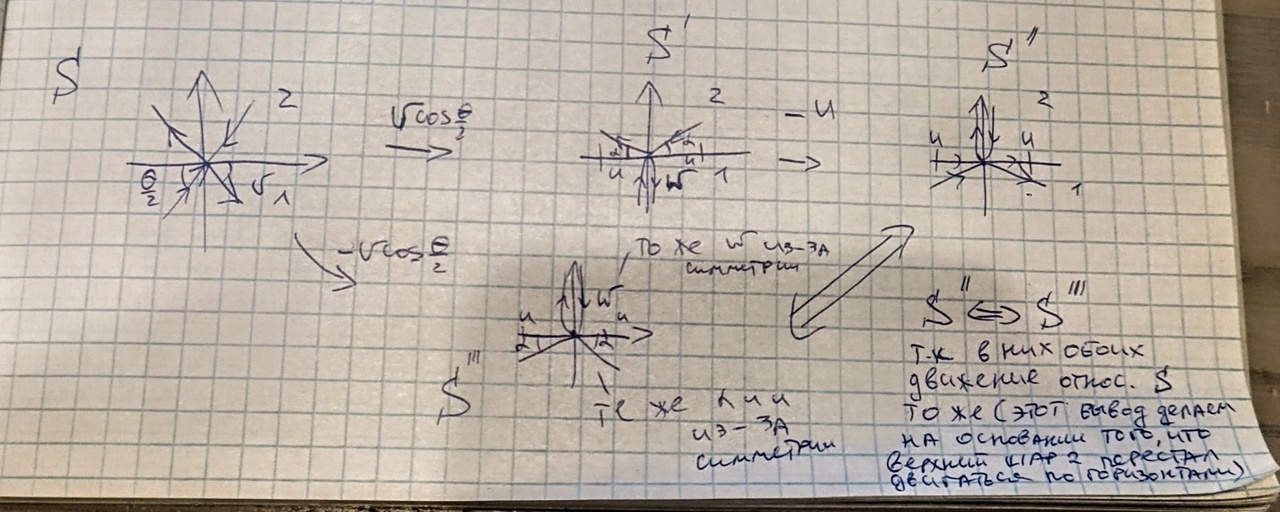 S
2
θ/2
v 1
v cos θ/2
-v cos θ/2
S'
2
α
α
u
u
w
1
-u
S''
2
u
u
1
S'''
u
w
u
α
α
то же w из-за
симметрии
те же α и u
из-за
симметрии
S'' ⇔ S'''
т.к в них обоих
движение относ. S
то же (этот вывод делаем
на основании того, что
верхний шар 2 перестал
двигаться по горизонтали)